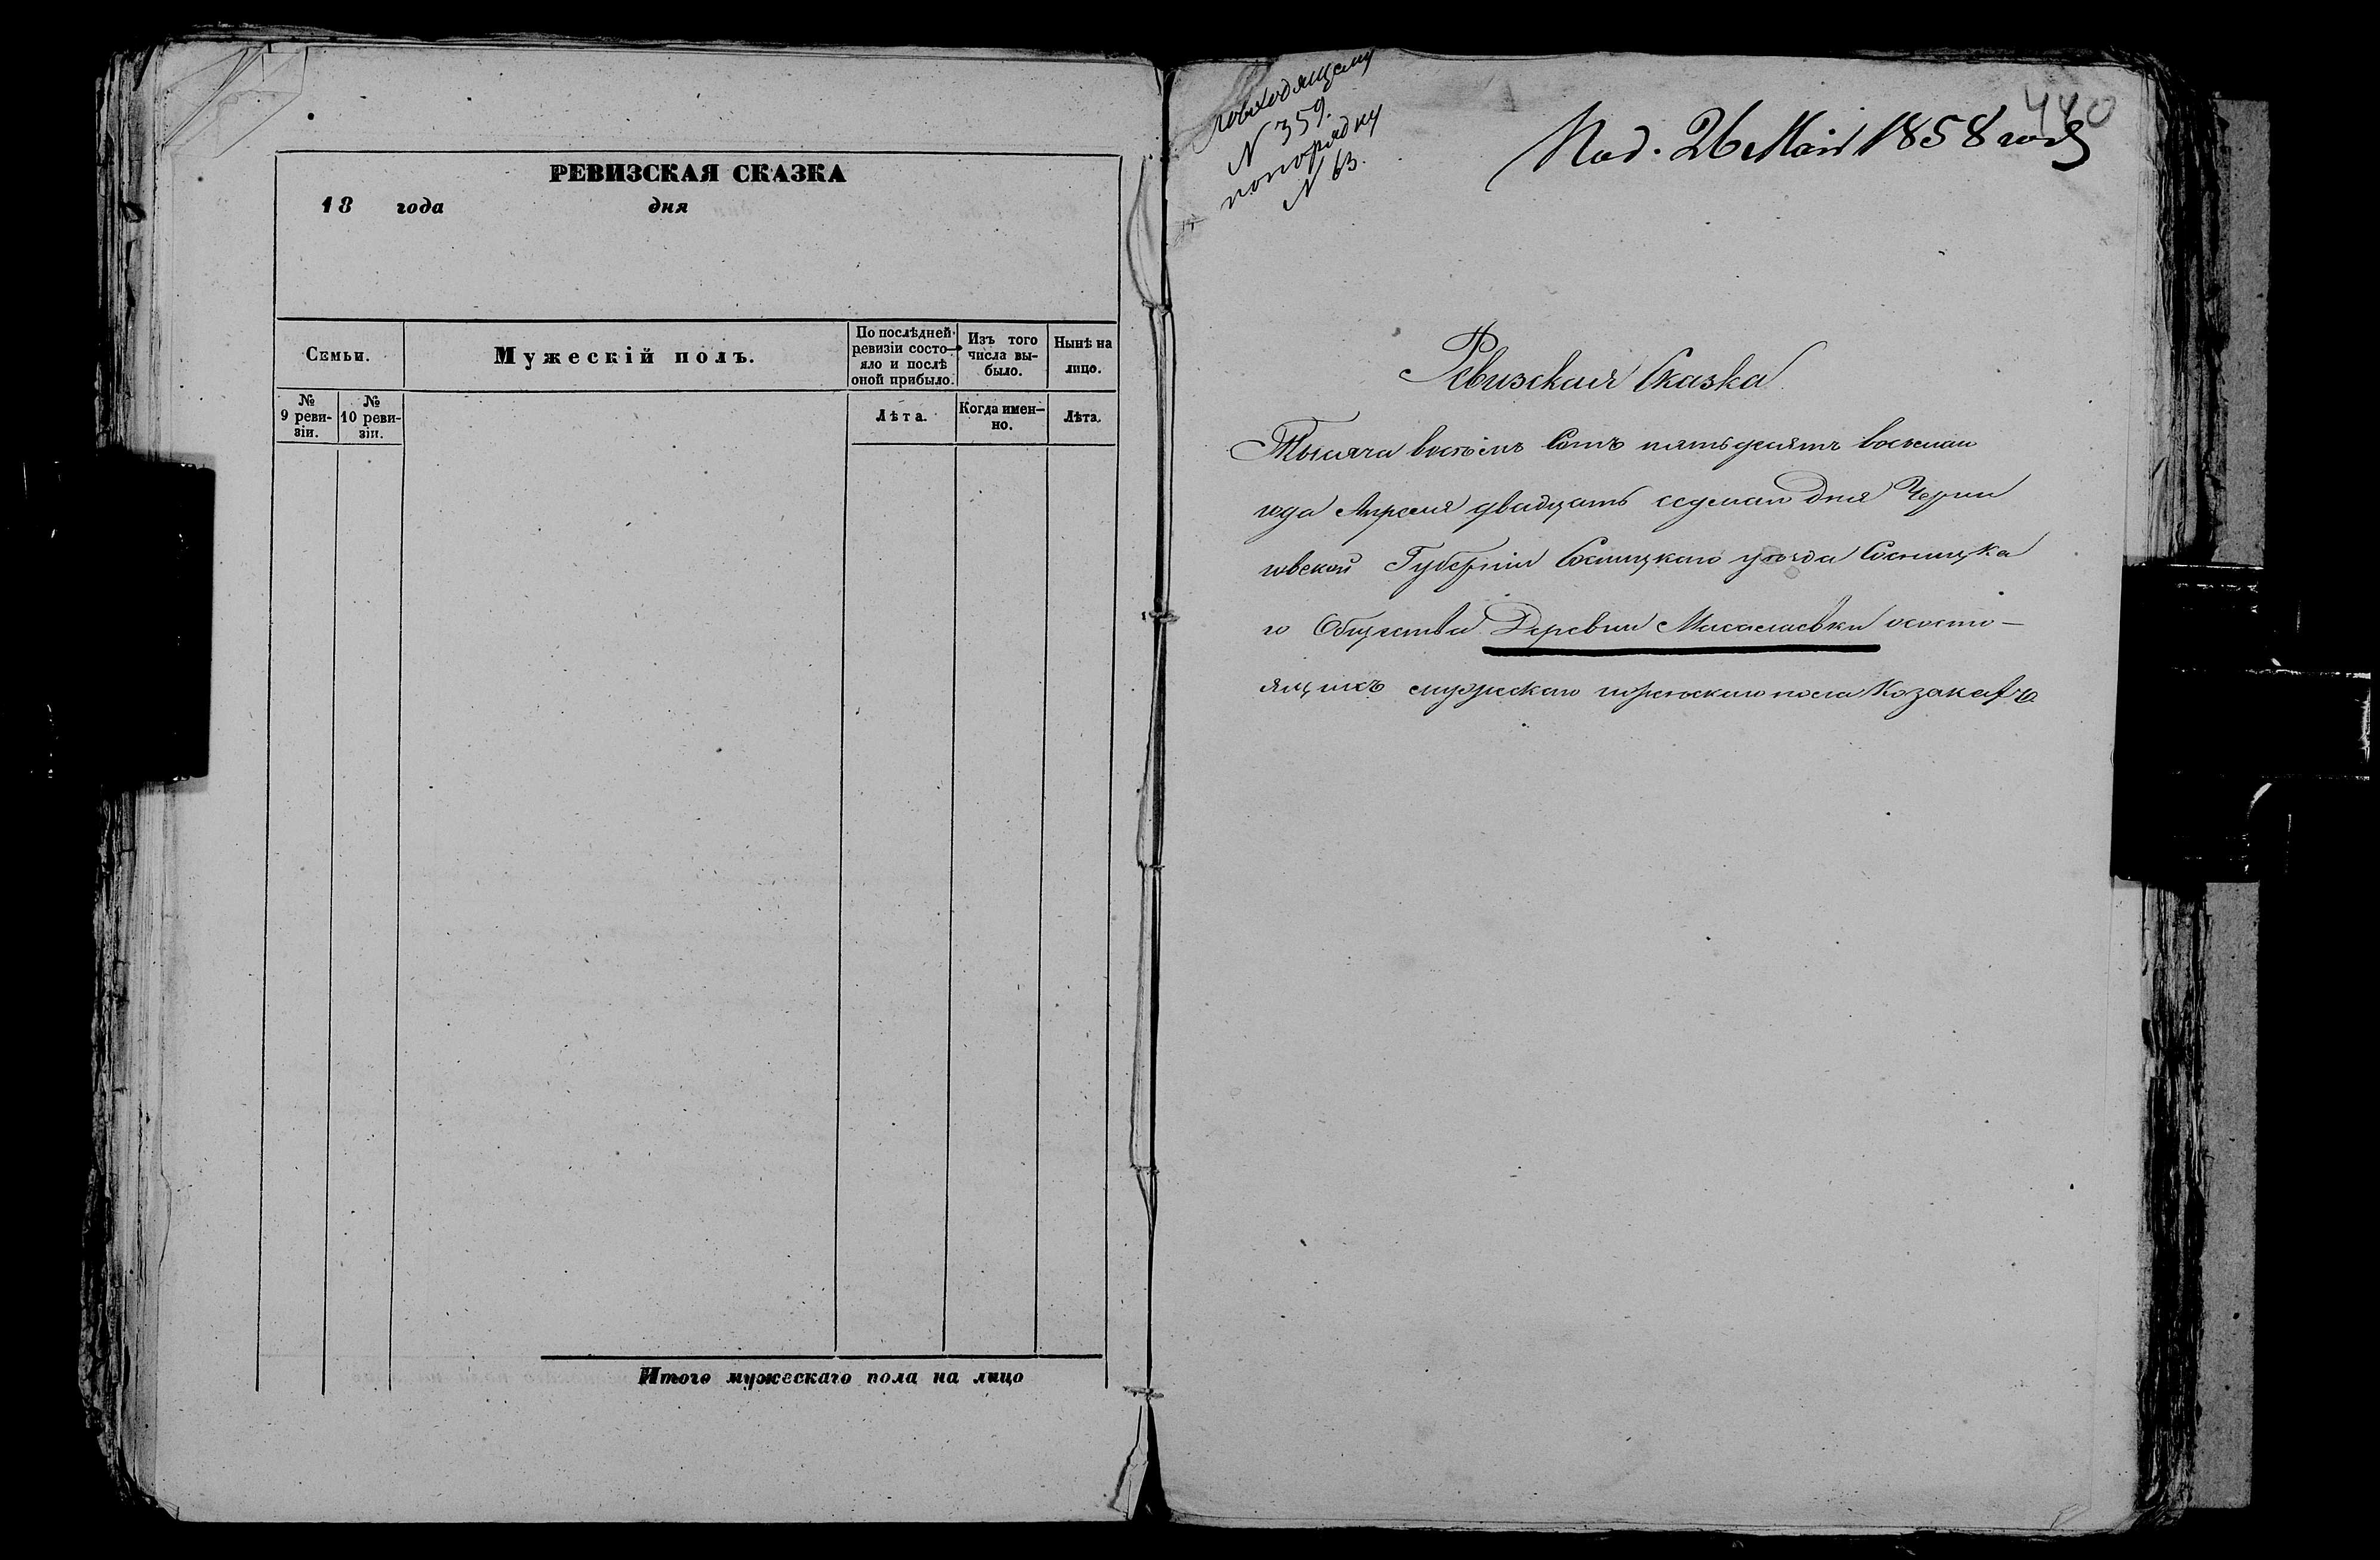 РЕВИЗСКАЯ СКАЗКА
18 года дня
Семьи.
Мужескій полъ.
По послѣдней ревизіи состояло и послѣ оной прибыло.
Изъ того числа выбыло.
Нынѣ на лицо.
№ 9 ревизіи.
№ 10 ревизіи.
Лѣта.
Когда именно.
Лѣта.
Итого мужескаго пола на лицо
повходящему
N 359.
попорядку
N 63.
440
Под. 26 Мая 1858 года
Ревизская Сказка
Тысяча восемъ Сотъ пятьдесятъ восьмаго
года Апреля двадцать седмаго Дня Черни
говской Губерніи Сосницкаго уѣзда Сосницка
го Общества Деревни Масалаевки ососто-
ящихъ мужескаго иженскаго пола Козакахъ